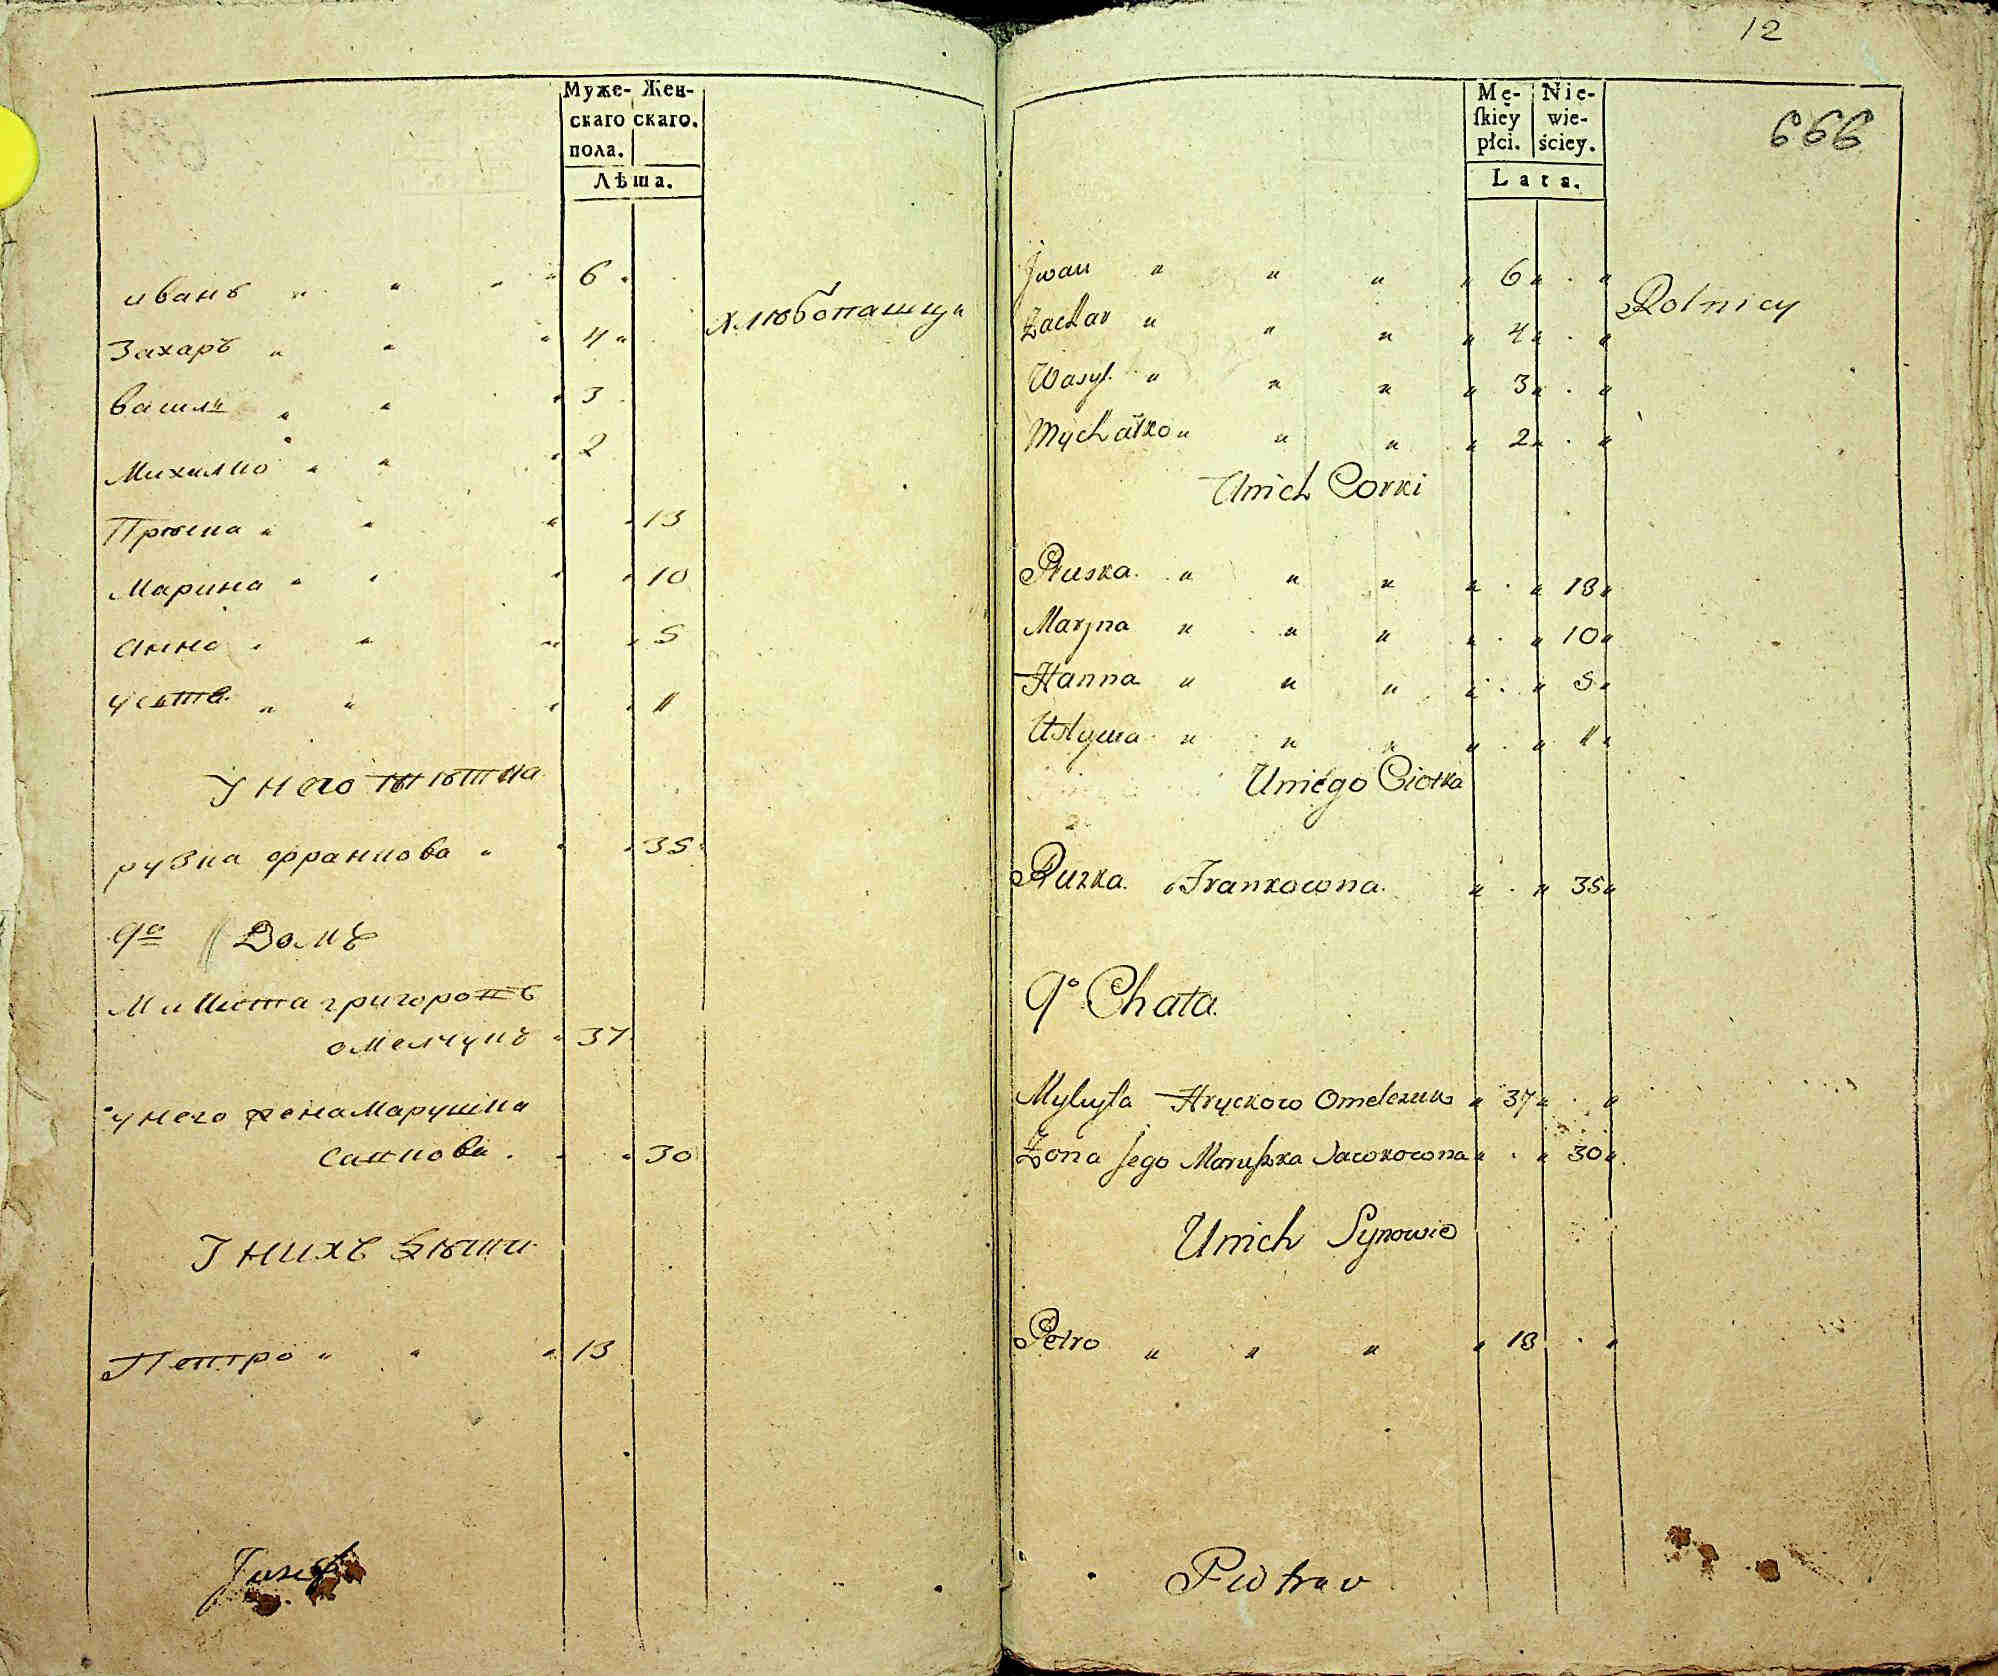 Муже- Жен-
скаго скаго.
пола.
Лѣта.
иванъ " " " " 6 "
Захаръ " " " 4 "
хлюбопашцы
василь " " " 3
Михалко " " " 2
Прюска " " " " 13
Марина " " " " 10
Анна " " " " 5
устя " " " " "
У него тютка
рузка франкова " " " 35
9о Домъ
Микита григоровъ
омелчукъ " 37
у него жена Марушка
Сацкова " " " 30
У нихъ Сыни
Петро " " " 13
Jusef
12
666
Mę- Nie-
skiey wie-
płci. ściey.
Lata.
Jwan " " " " 6 " . "
Rolnicy
Zachar " " " " 4 " . "
Wasyl. " " " " 3 " . "
Mychałko " " " " 2 " . "
Unich Corki
Pruska. " " " " . " 13 "
Maryna " " " " . " 10 "
Hanna " " " " . " 5 "
Ustyma " " " " . " " "
Uniego Ciotka
Ruzka. Frankowna. " . " 35 "
9o Chata.
Mykyta Hryckow Omelczuk " 37 " . "
Zona Jego Maruszka Jackowna " . " 30 "
Unich Synowie
Petro " " " " 13 . "
Piotrow